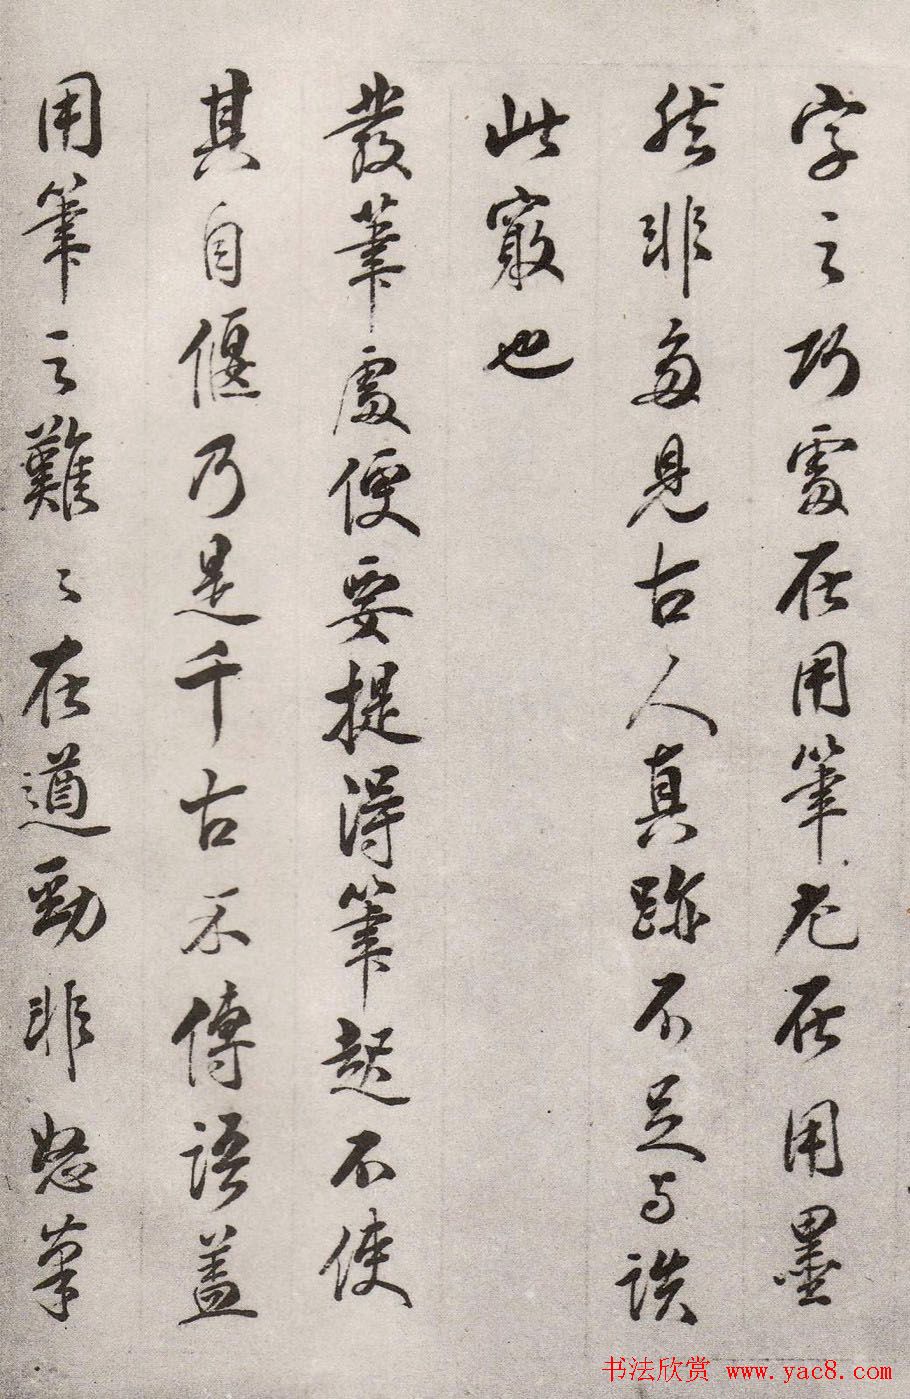 字之巧處在用筆尤在用墨
然非多見古人真跡不足与談
此竅也
發筆處便要提得筆起不使
其自偃乃是千古不傳語蓋
用筆之難〻在遒勁非怒筆
书法欣赏 www.yac8.com